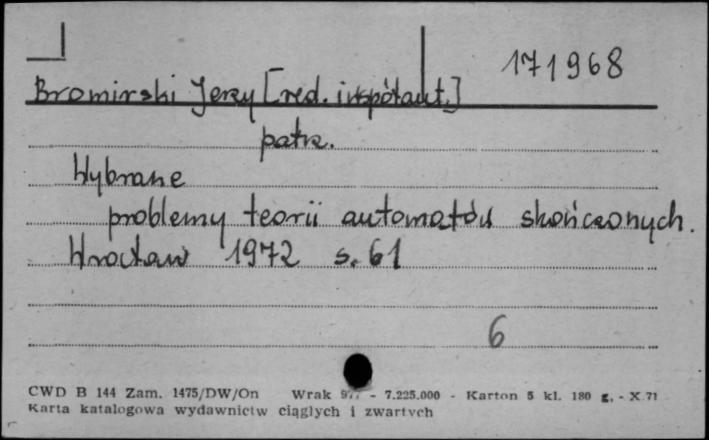 171968
Bromirski Jerzy [red. i współaut.]
patrz.
Wybrane
problemy teorii automatów skończonych.
Wrocław 1972 s. 61
6
CWD B 144 Zam. 1475/DW/On Wrak - 7.225.000 - Karton 5 kl. 180 g. - X.71
Karta katalogowa wydawnictw ciągłych i zwartych